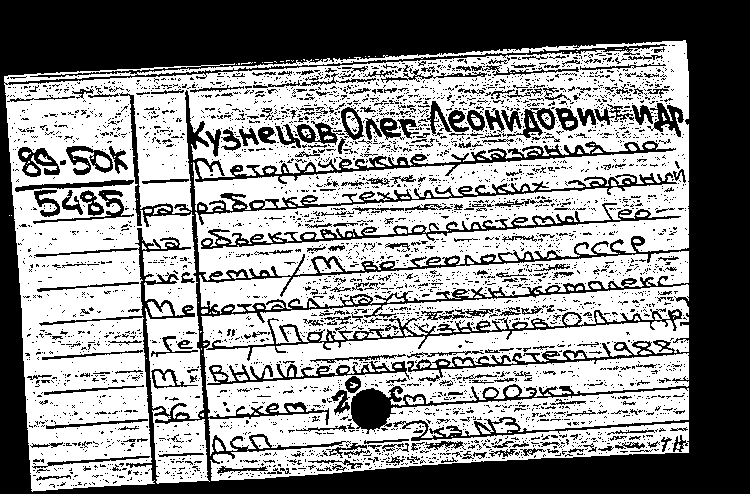 Кузнецов, Олег Леонидович и др.
89-50К
5485
Методические указания по
разработке технических заданий
на объектовые подсистемы Гео-
системы / М-во геологии СССР,
Межотрасл. науч.-техн. комплекс
"Геос"; [Подгот. Кузнецов О.Л. и др.]
М.: ВНИИгеоинформсистем, 1988.
36 с.: схем.; 20 см. - 100 экз.
ДСП. Экз. N3.